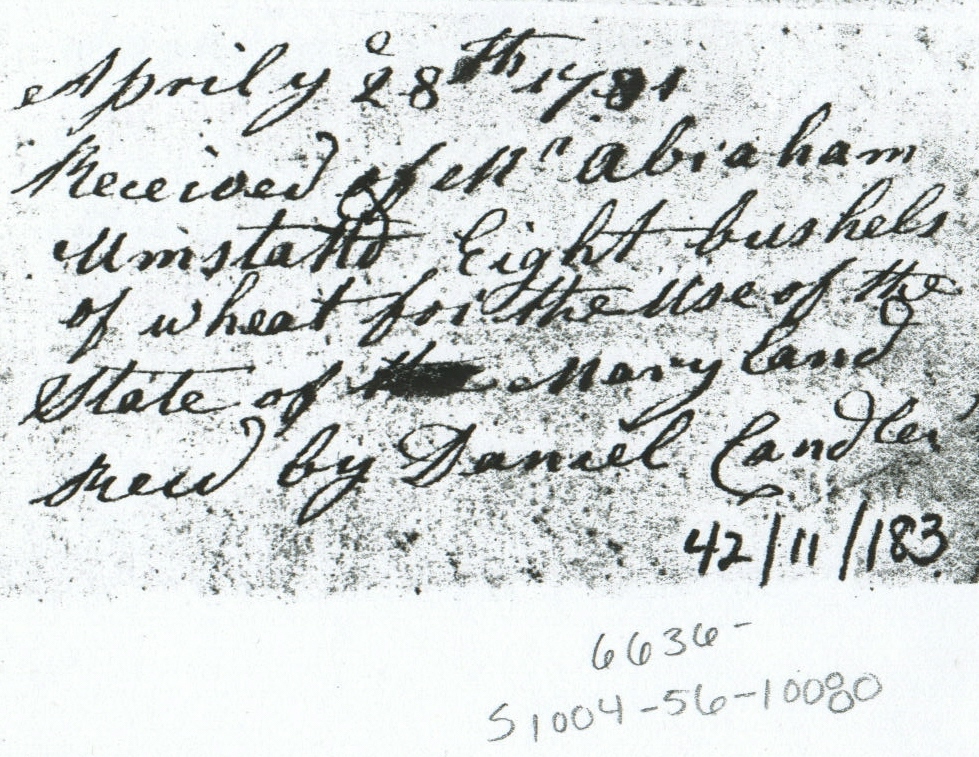 April y° 28th 1781
Received of Mr Abraham
Umstattd Eight bushels
of wheat for the Use of the
State of the Maryland
Recd by Daniel Candler
42/11/183
6636-
S1004-56-10080